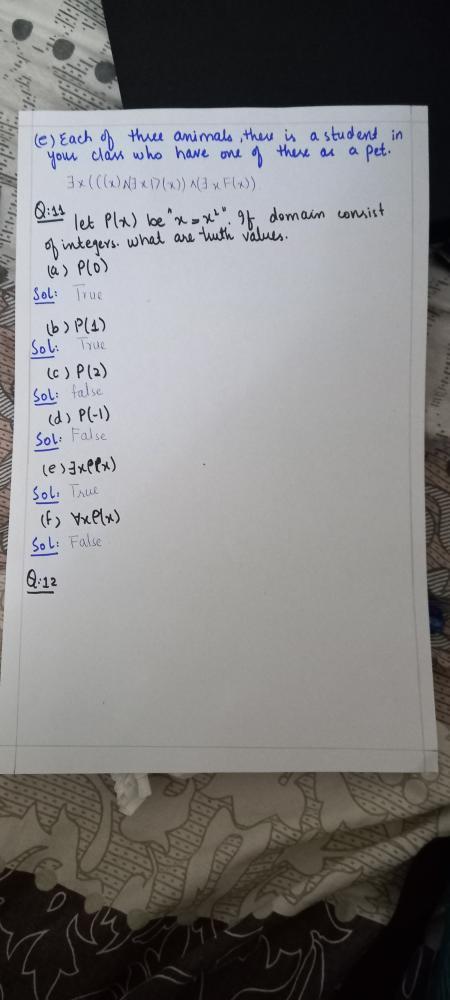 (e) Each of three animals, there is a student in
your class who have one of these as a pet.
∃x(((x)∧∃x D(x)) ∧(∃x F(x))
Q:11 let P(x) be "x = x²". If domain consist
of integers. what are truth values.
(a) P(0)
Sol: True
(b) P(1)
Sol: True
(c) P(2)
Sol: false
(d) P(-1)
Sol: False
(e) ∃xP(x)
Sol: True
(f) ∀xP(x)
Sol: False
Q:12